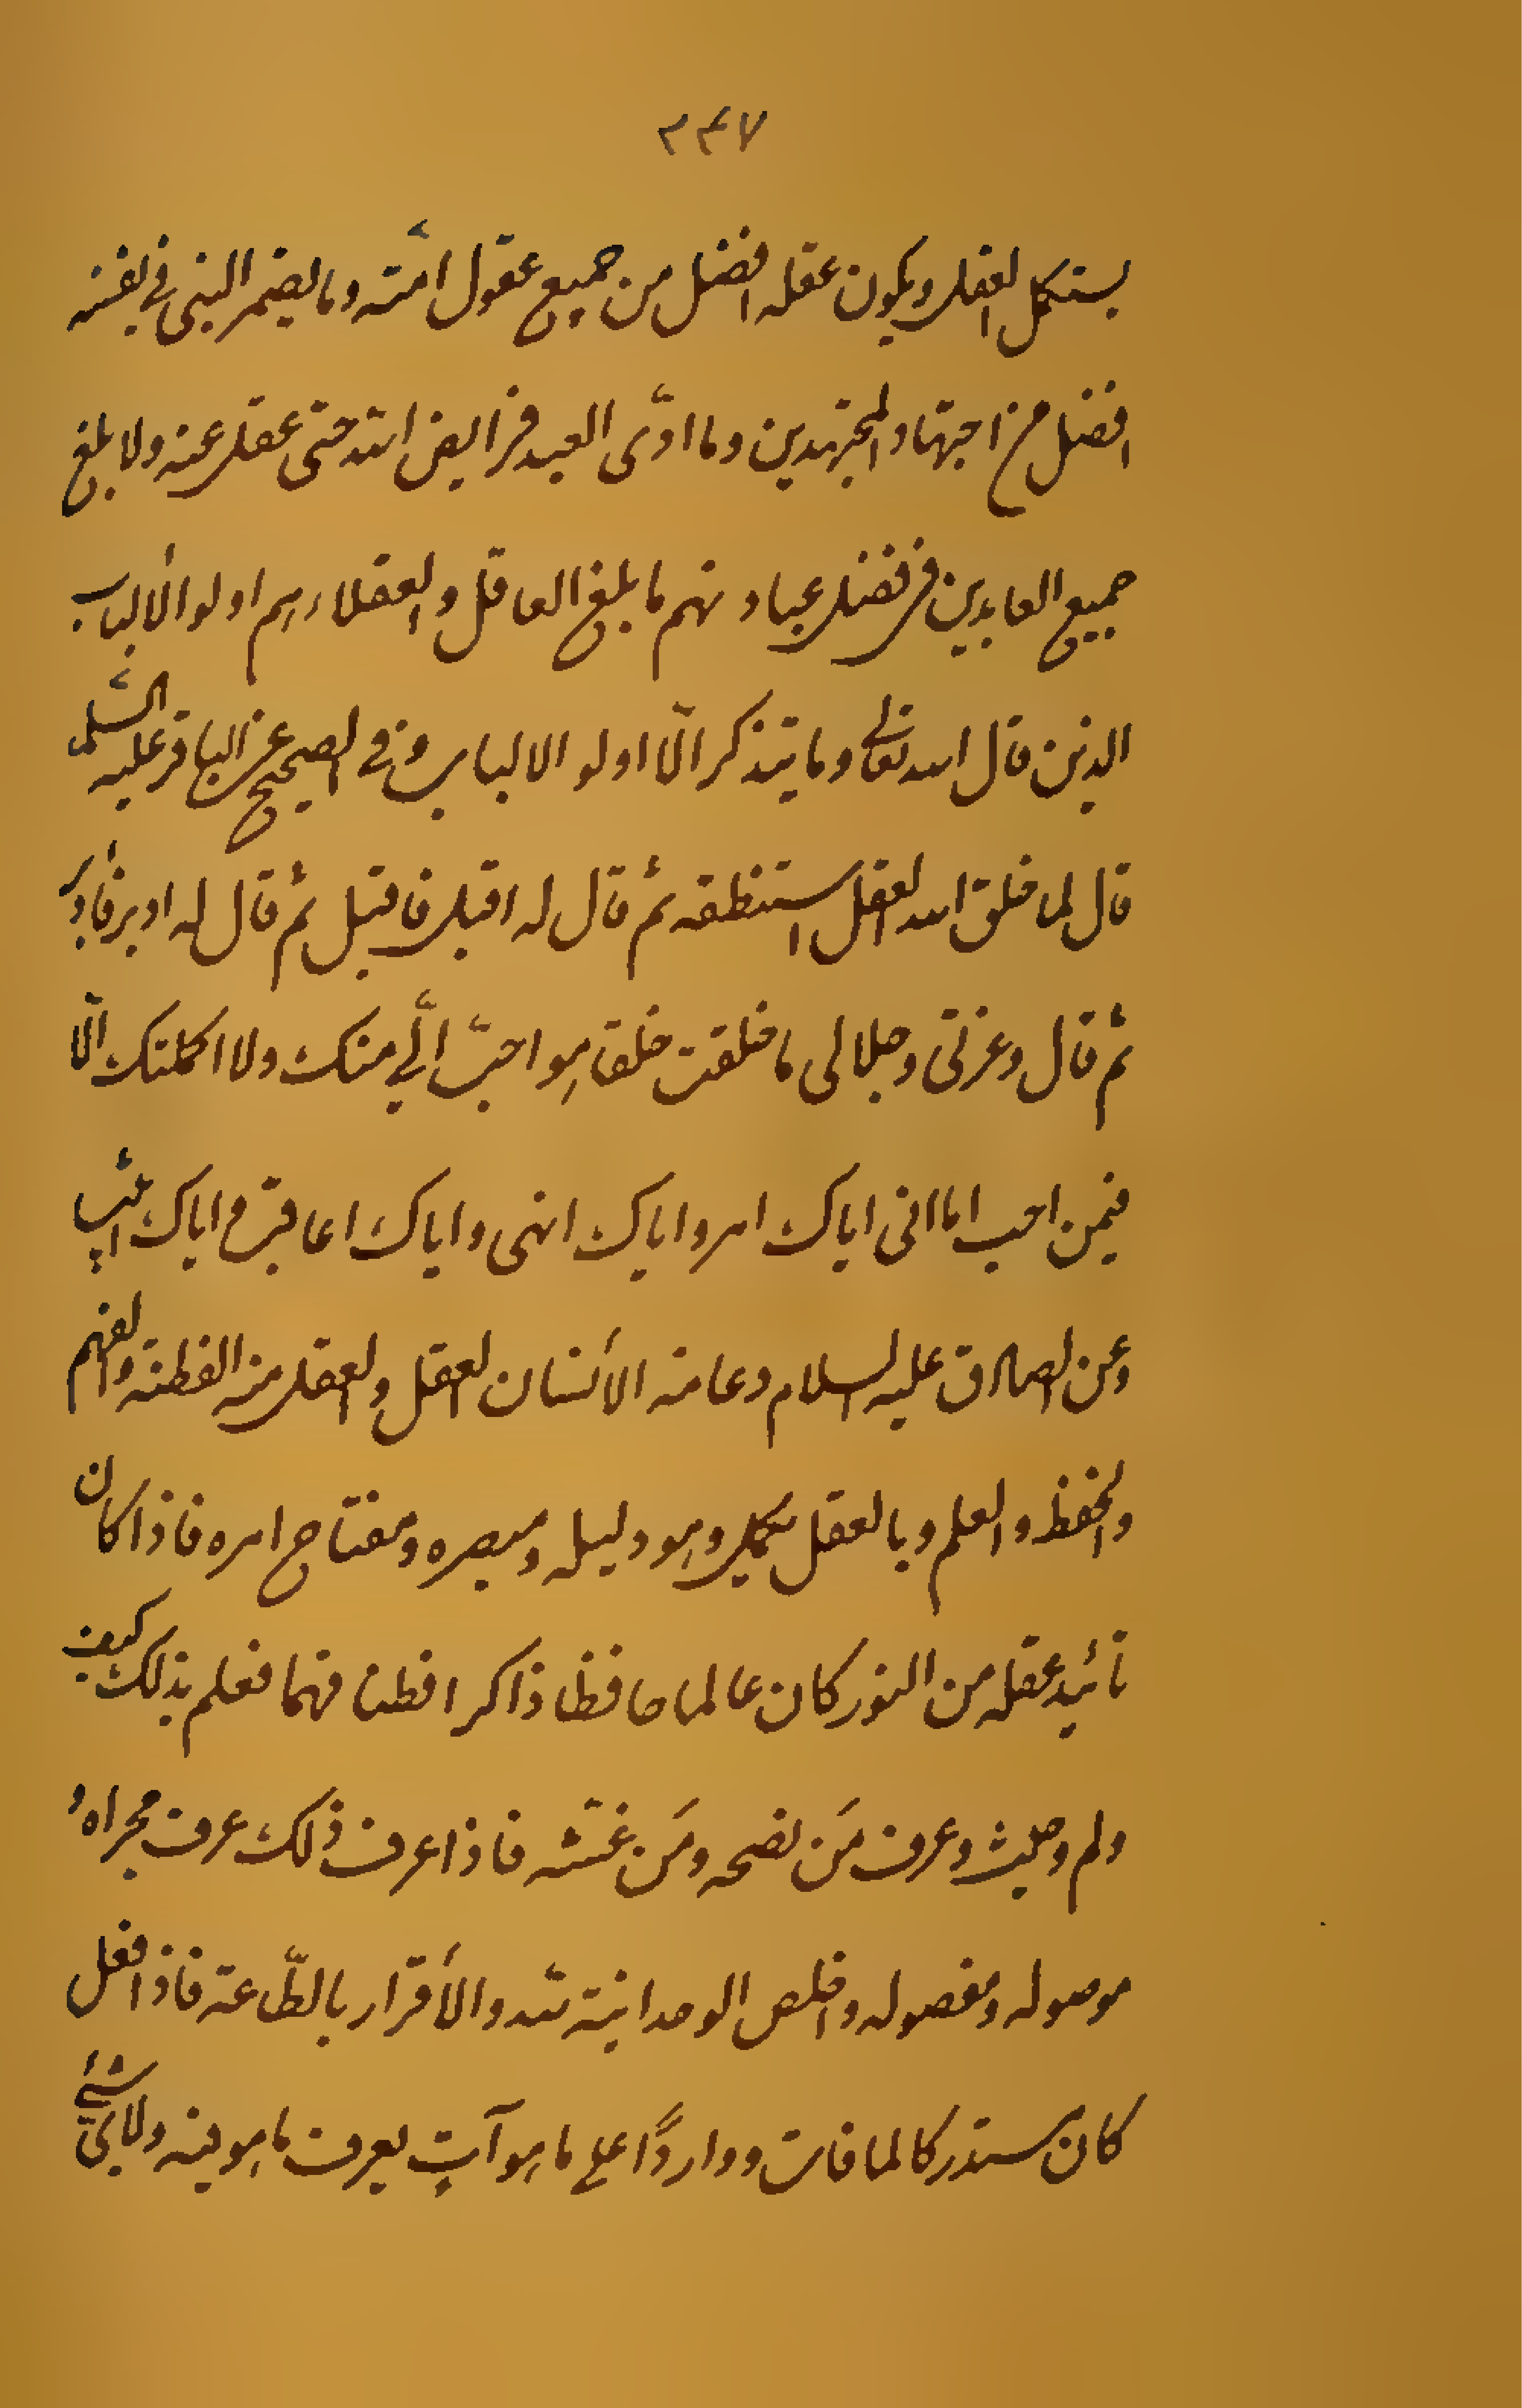 ٣٤٧
يستكمل العقل ويكون عقله افضل من جميع عقول امّته وما يضمر النبى في نفسه
افضل من اجتهاد المجتهدين وما ادّى العبد فرايض الله حتى عقل عنه ولا بلغ
جميع العابدين فى فضل عبادتهم ما بلغ العاقل والعقلاء هم اولو الألباب
الذين قال الله تعالى وما يتذكر الّا اولو الالباب وفي الصحيح عن الباقر عليه السّلم
قال لما خلق الله العقل استنطقه ثم قال له اقبل فاقبل ثم قال له ادبر فادبر
ثم قال وعزتى وجلالى ما خلقت خلقا هو احبّ الّي منك ولا اكملتك الّا
فيمن احب اما انى اياك امر واياك انهى واياك اعاقب واياك اثيب
وعن الصادق عليه السلام دعامة الأنسان العقل والعقل منه الفطنة والفهم
والحفظ والعلم وبالعقل يكمل وهو دليله ومبصره ومفتاح امره فاذا كان
تائيد عقله من النور كان عالما حافظا ذاكرا فطنا فهما فعلم بذلك كيف
ولم وحيث وعرف مَن نصحه ومَن غشّه فاذا عرف ذلك عرف مجراه و
موصوله ومفصوله واخلص الوحدانية لله والأقرار بالطّاعة فاذا فعل
كان مستدركا لما فات وواردًا على ما هو آتٍ يعرف ما هو فيه ولأيّ شئ